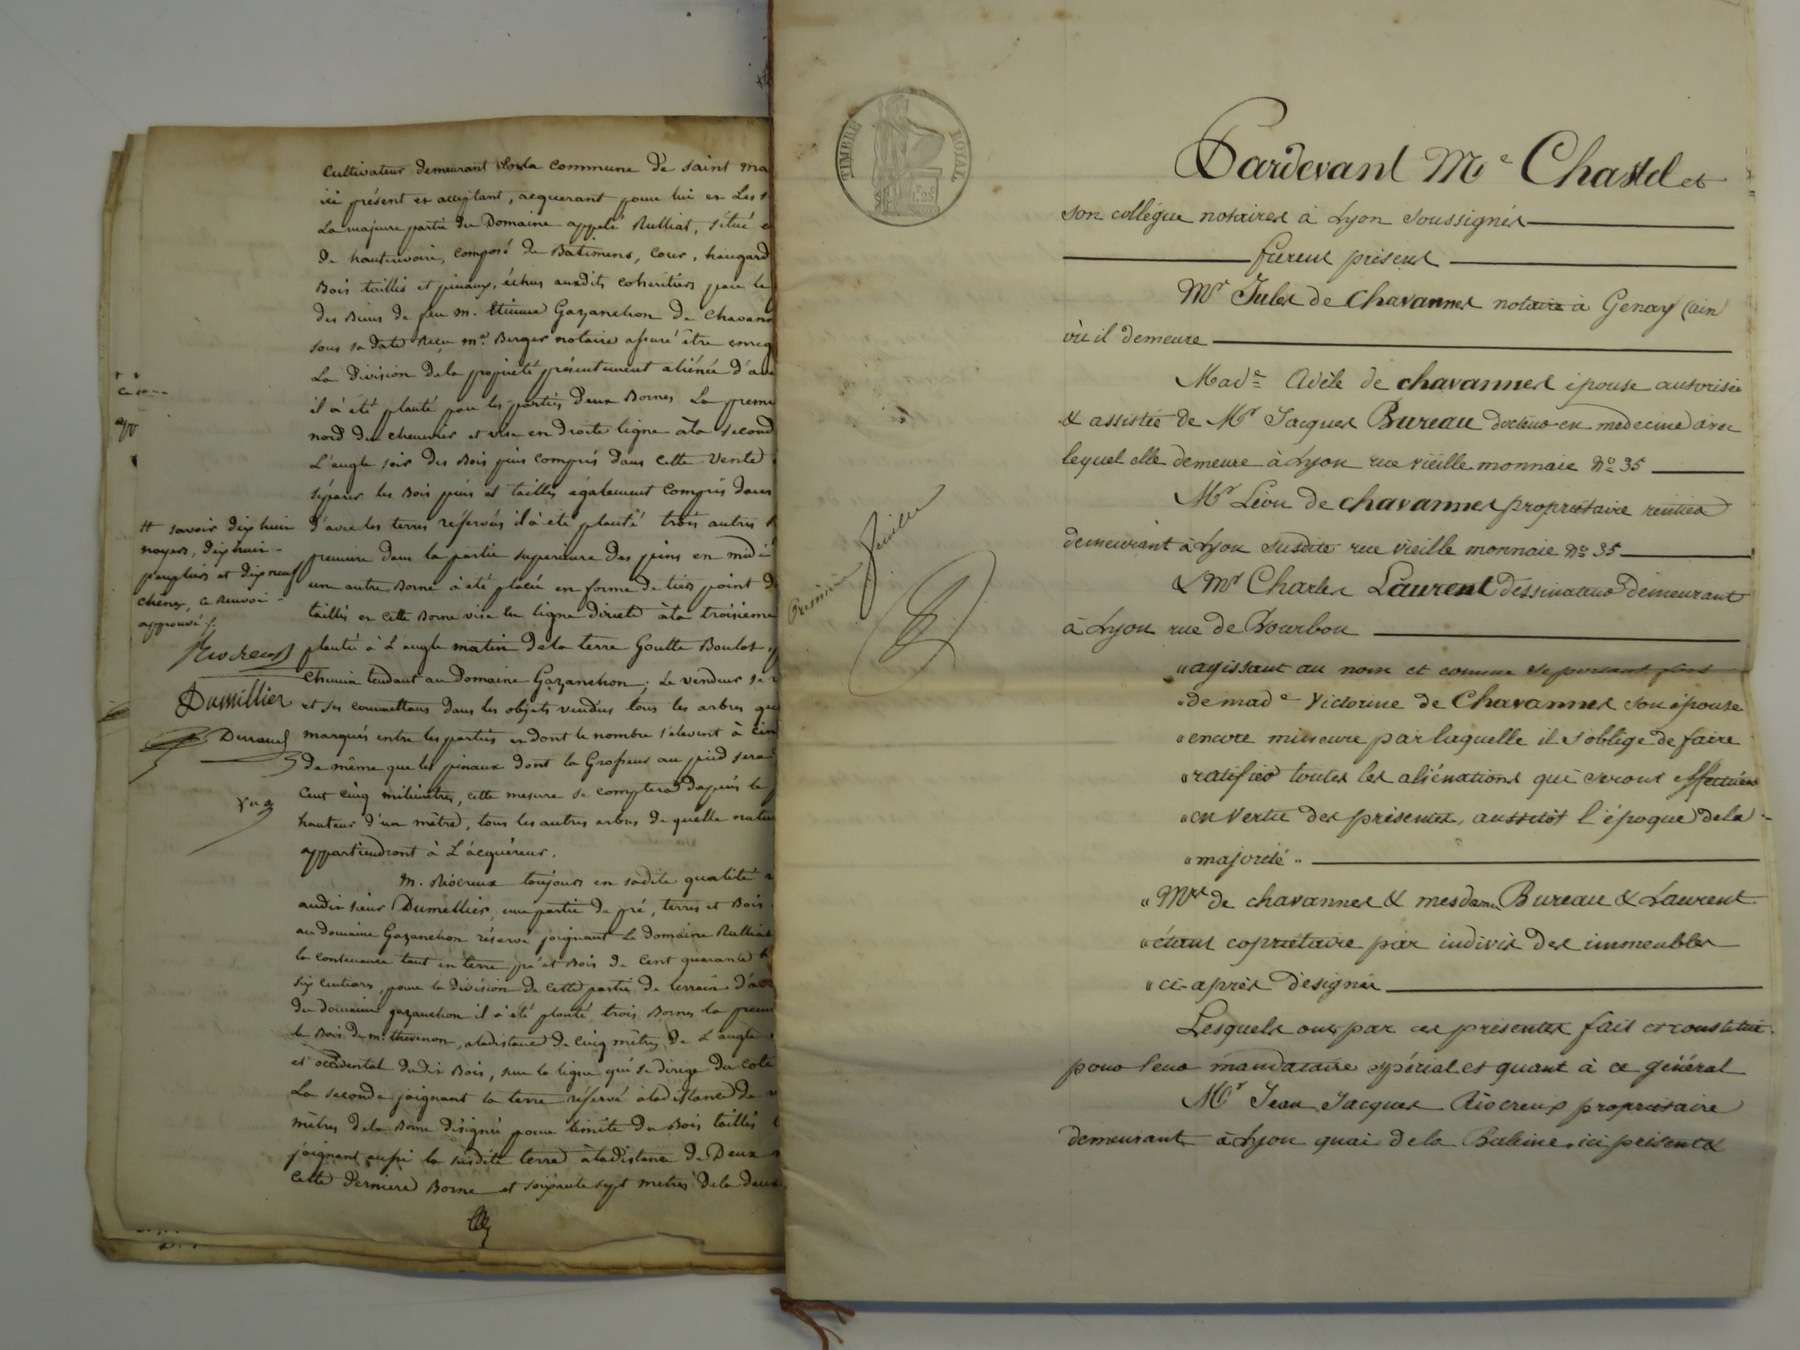 cultivateur demeurant sur la commune de saint ma
ici présent et acceptant, acquerant pour lui et Les s
La majeure partie du Domaine appelé Rulliat, situé
de hauterivoire, composé de Batiments, cour, hangard
Bois taillis et pinaux, échus auxdits cohéritiers par le
des Biens de feu m. Etienne Gazanchon de Chavann
sous sa date Reçu me. Berger notaire assuré être enreg
La Division de la propriété présentement aliénée d'ave
il à été planté par les parties Deux Bornes La premi
nord du chenevier et vise en droite ligne à la second
L'angle soir des Bois pins compris dans cette vente
séparer les Bois pins et taillis également compris dans
d'avec les terres réservées il à été planté trois autres
première dans la partie superieure des pins en midi
une autre Borne à été placée en forme de tiers point d
taillis et cette Borne vise en ligne directe à la troisième
plantée à L'angle matin de la terre Goutte Boulat
chemin tendant au Domaine Gazanchon; Le vendeur
et ses commettans dans les objets vendus tous les arbres qui
marqués entre les parties et dont le nombre s'élevent à cin
de même que les pinaux dont la Grosseur au pied sera
Cent cinq milimètres, cette mesure se comptera depuis le
hauteur d'un mètre, tous les autres arbres de quelle natur
appartiendront à L'acquéreur.
M. Riocreux toujours en sadite qualité
audit sieur Dumellier, une partie de pré, terres et Bois
au domaine Gazanchon réservé joignant Le domaine Rulliat
la contenance tant en terre pré et Bois de Cent quarante
six centiars, pour la division de cette partie de terrain d'av
du domaine gazanchon il à été planté trois Bornes la premi
le Bois de m. thevenon, à la distance de cinq mètres de L'angle
et occidental dudit Bois, sur la ligne qui se dirige du coté
La seconde joignant la terre réservé à la distance de
mètres de la Borne désignée pour limite du Bois taillis
joignant aussi la susdite terre à la distance de Deux
Cette dernière Borne et soixante sept mètres de la deux
# savoir dix huit
noyers, dix huit
peupliers et dix neuf
chênes, ce Renvoi
approuvé
Riocreux
Dumillier
Derraud
TIMBRE ROYAL
Première feuille
Pardevant Me Chastel et
son collégue notaires à Lyon soussignés
furent présens
Mr Jules de Chavannes notaire à Genay (ain
où il demeure
Made Adèle de chavannes épouse autorisée
& assistée de Mr Jacques Bureau docteur en medecine avec
lequel elle demeure à Lyon rue vieille monnaie no 35
Mr Léon de chavannes propriétaire rentier
demeurant à Lyon susdite rue vieille monnaie no 35
& Mr Charles Laurent dessinateur demeurant
à Lyon rue de Bourbon
"agissant au nom et comme se portant fort
"de made Victorine de Chavannes son épouse
"encore mineure par laquelle il s'oblige de faire
"ratifier toutes les aliénations qui seront effectuées
"en vertu des présentes, aussitôt l'époque de la
"majorité"
"Mrs de chavannes & mesdames Bureau & Laurent
"étant copropriétaire par indivis des immeubles
"ci-après désignés
Lesquels ont par ces présentes fait et constitué
pour leur mandataire spécial et quant à ce général
Mr Jean Jacques Riocreux propriétaire
demeurant à Lyon quai de la Baleine ici présent &